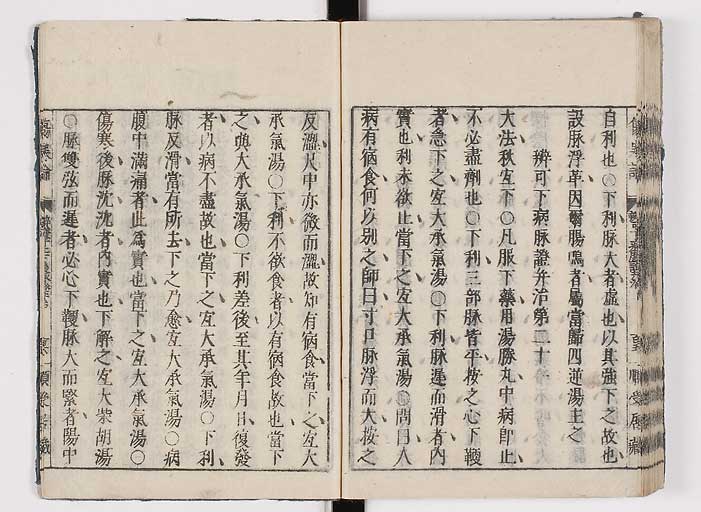 自利也○下利脉大者虛也以其強下之故也
設脉浮革因爾腸鳴者屬當歸四逆湯主之
辨可下病脉證并治第二十一
大法秋宜下○凡服下藥用湯勝丸中病即止
不必盡劑也○下利三部脉皆平按之心下鞕
者急下之宜大承氣湯○下利脉遲而滑者內
實也利未欲止當下之宜大承氣湯○問曰人
病有宿食何以別之師曰寸口脉浮而大按之
反濇尺中亦微而濇故知有宿食當下之宜大
承氣湯○下利不欲食者以有宿食故也當下
之與大承氣湯○下利差後至其年月日復發
者以病不盡故也當下之宜大承氣湯○下利
脉反滑當有所去下之乃愈宜大承氣湯○病
腹中滿痛者此爲實也當下之宜大承氣湯○
傷寒後脉沈沈者內實也下解之宜大柴胡湯
○脉雙弦而遲者必心下鞕脉大而緊者陽中